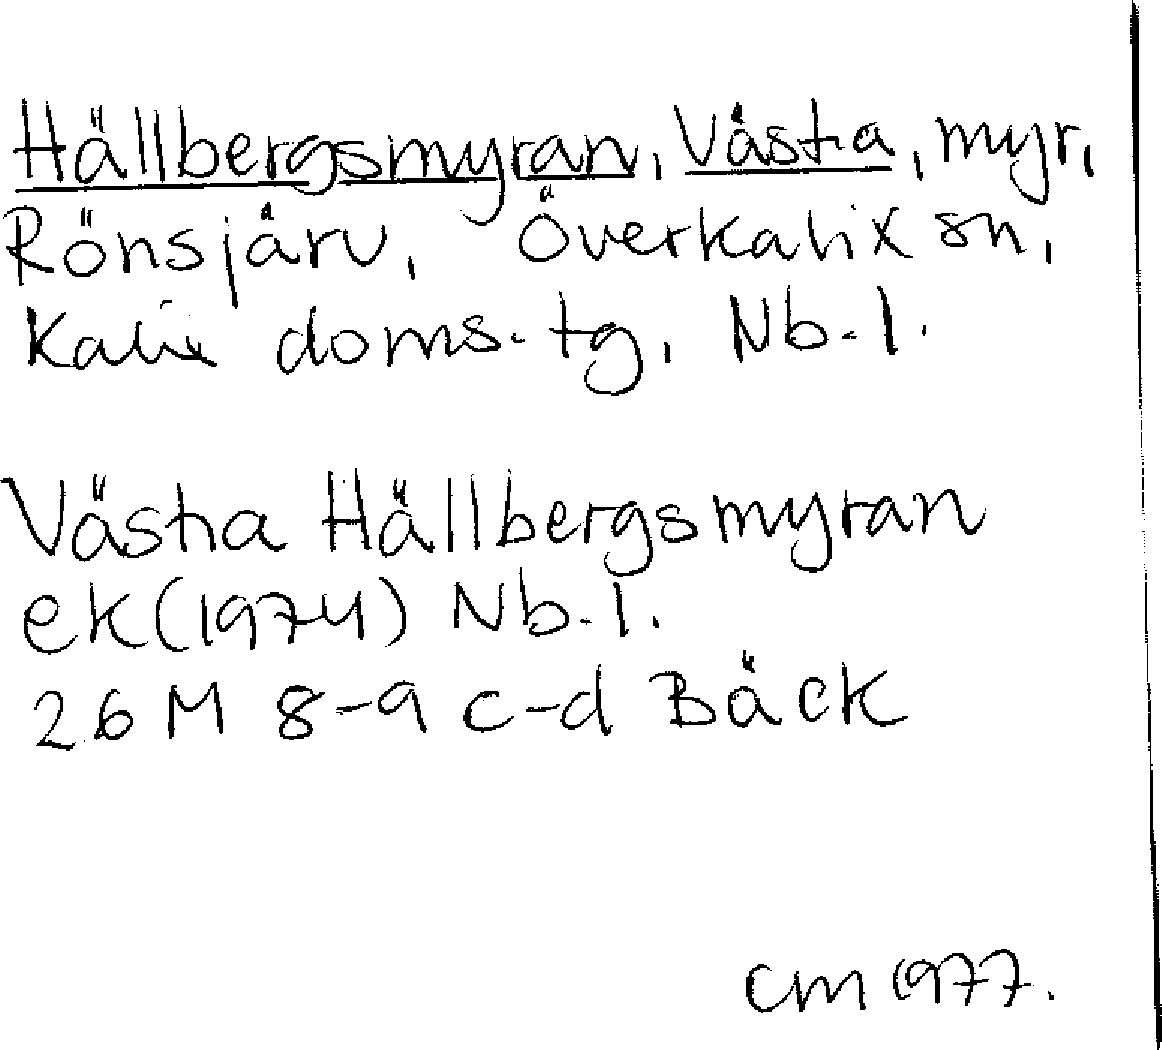 Hällbergsmyran, Västra, myr,
Rönsjärv, Överkalix sn,
Kalix doms. tg, Nb. l.
Västra Hällbergsmyran
ek (1974) Nb. l.
26 M 8-9 c-d Bäck
CM 1977.